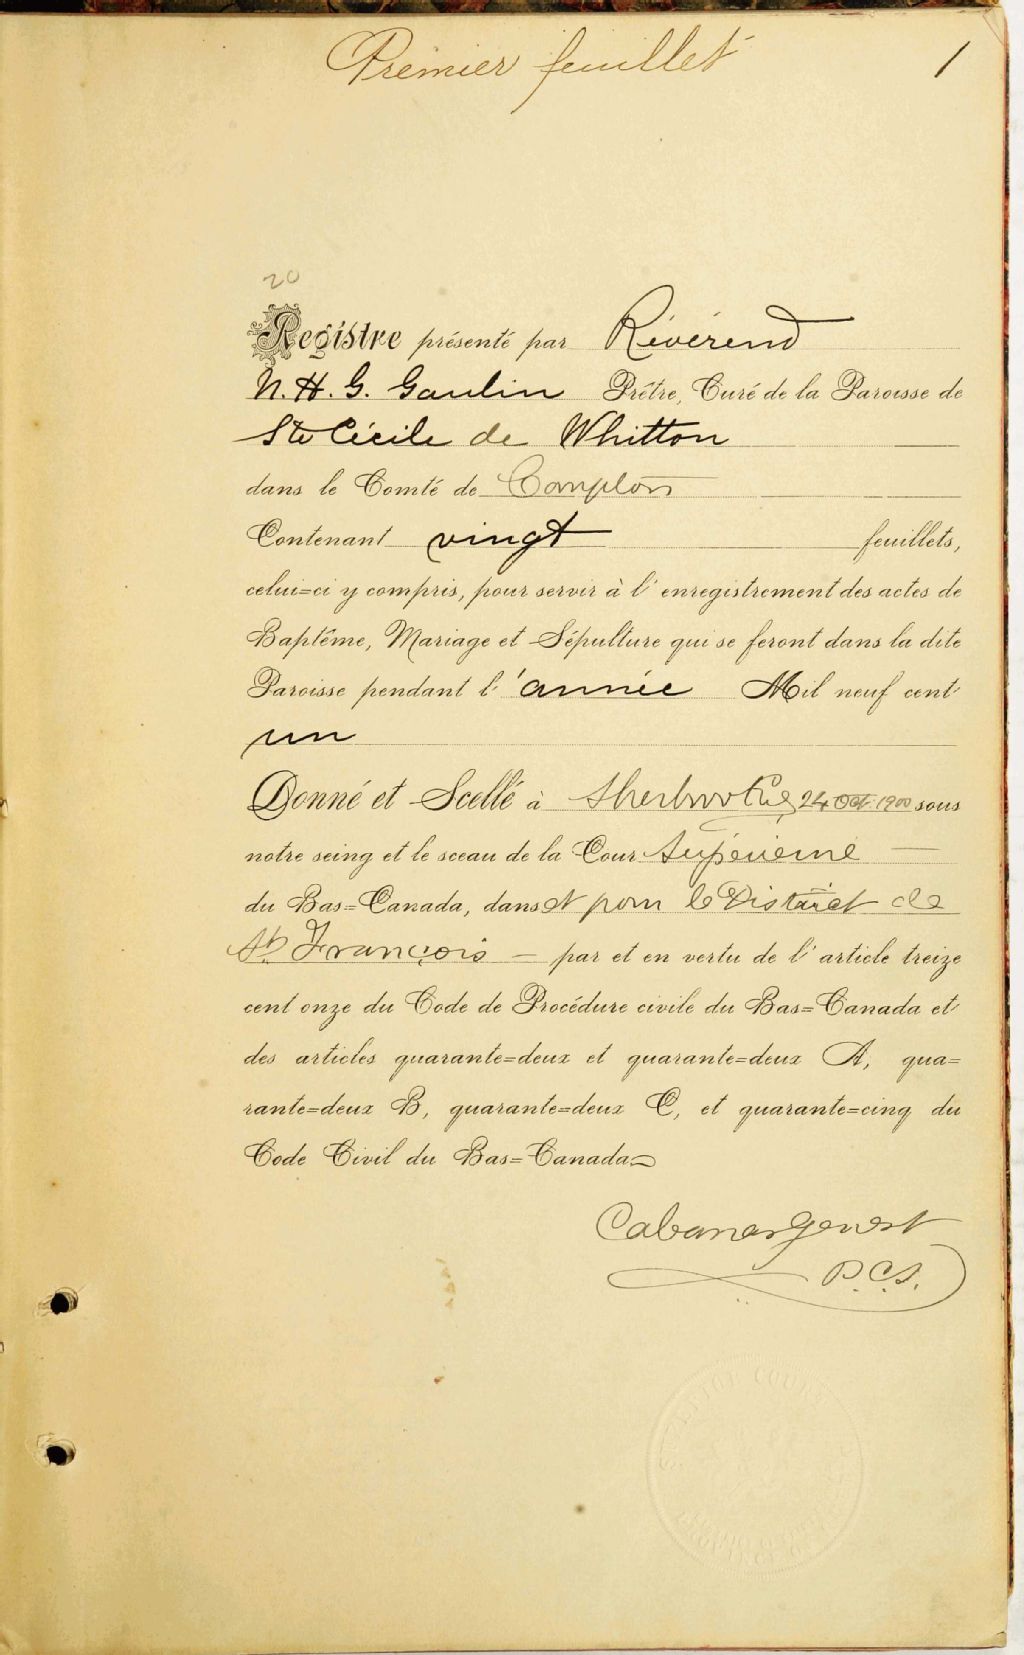 Premier feuillet
1
20
Registre présenté par Révérend
N. H. G. Gaulin Prêtre, Curé de la Paroisse de
Ste Cécile de Whitton
dans le Comté de Compton
Contenant vingt feuillets,
celui=ci y compris, pour servir à l'enregistrement des actes de
Baptême, Mariage et Sépulture qui se feront dans la dite
Paroisse pendant l'année Mil neuf cent
un
Donné et Scellé à Sherbrooke, 24 Oct. 1900 sous
notre seing et le sceau de la Cour Supérieure
du Bas=Canada, dans et pour le District de
St. François — par et en vertu de l'article treize
cent onze du Code de Procédure civile du Bas=Canada et
des articles quarante=deux et quarante=deux A, qua=
rante=deux B, quarante=deux C, et quarante=cinq du
Code Civil du Bas=Canada
Cabana & Genest
P.C.S.
SUPERIOR COURT
PROVINCE OF